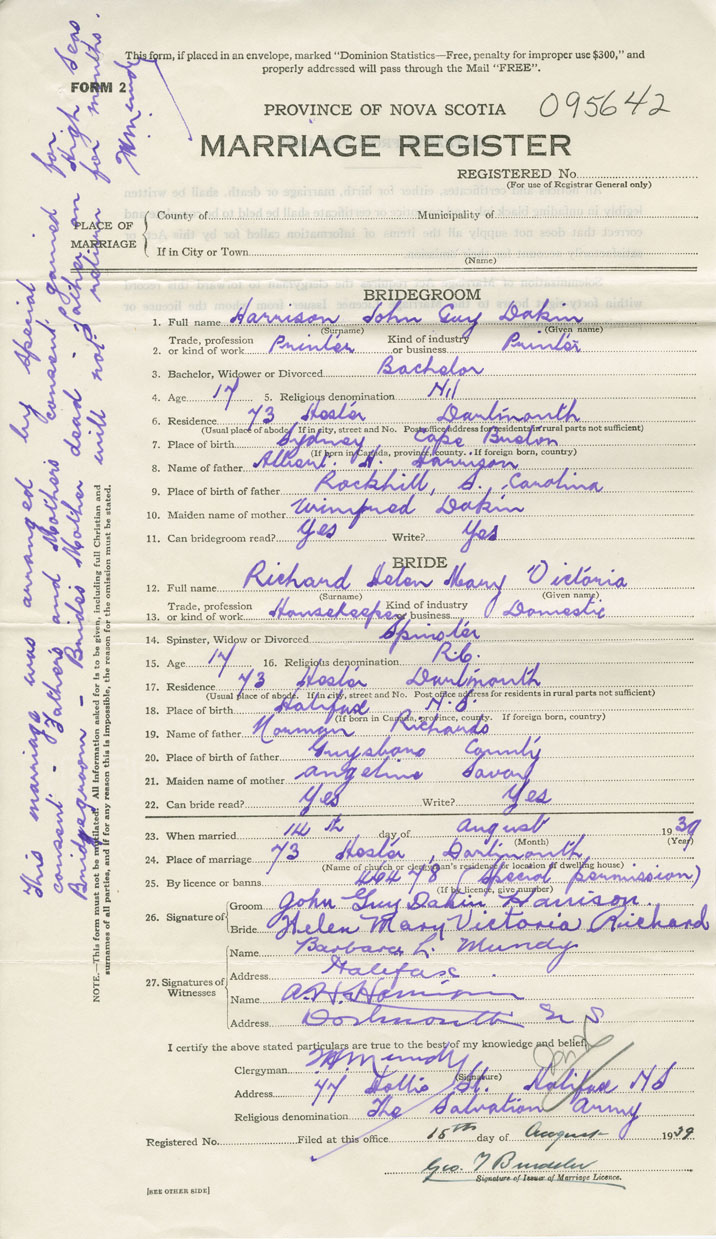 This form, if placed in an envelope, marked "Dominion Statistics—Free, penalty for improper use $300," and
properly addressed will pass through the Mail "FREE".
FORM 2
PROVINCE OF NOVA SCOTIA 095642
MARRIAGE REGISTER
REGISTERED No.
(For use of Registrar General only)
PLACE OF MARRIAGE
County of Municipality of
If in City or Town
(Name)
BRIDEGROOM
1. Full name Harrison John Guy Dakin
(Surname) (Given name)
2. Trade, profession or kind of work Printer Kind of industry or business Printer
3. Bachelor, Widower or Divorced Bachelor
4. Age 17 5. Religious denomination Nil
6. Residence 73 Hester Dartmouth
(Usual place of abode. If in city, street and No. Post office address for residents in rural parts not sufficient)
7. Place of birth Sydney Cape Breton
(If born in Canada, province, county. If foreign born, country)
8. Name of father Albert. H. Harrison
9. Place of birth of father Rockhill, S. Carolina
10. Maiden name of mother Winifred Dakin
11. Can bridegroom read? Yes Write? Yes
BRIDE
12. Full name Richard Helen Mary Victoria
(Surname) (Given name)
13. Trade, profession or kind of work Housekeeper Kind of industry or business Domestic
14. Spinster, Widow or Divorced Spinster
15. Age 17 16. Religious denomination R.C.
17. Residence 73 Hester Dartmouth
(Usual place of abode. If in city, street and No. Post office address for residents in rural parts not sufficient)
18. Place of birth Halifax N.S.
(If born in Canada, province, county. If foreign born, country)
19. Name of father Norman Richards
20. Place of birth of father Guysboro County
21. Maiden name of mother Angeline Savory
22. Can bride read? Yes Write? Yes
23. When married 14th day of August 1939
(Month) (Year)
24. Place of marriage 73 Hester, Dartmouth
(Name of church or clergyman's residence or location if dwelling house)
25. By licence or banns 48478 (Special permission)
(If by licence, give number)
26. Signature of
Groom John Guy Dakin Harrison.
Bride Helen Mary Victoria Richard
27. Signatures of Witnesses
Name Barbara L. Mundy
Address Halifax
Name A. H. Harrison
Address Dartmouth N S
I certify the above stated particulars are true to the best of my knowledge and belief.
Clergyman W Mundy
(Signature)
Address 44 Hollis St. Halifax NS
Religious denomination The Salvation Army
Registered No. Filed at this office 15th day of August 1939
Geo. T
Signature of Issuer of Marriage Licence.
[SEE OTHER SIDE]
NOTE.—This form must not be mutilated. All information asked for is to be given, including full Christian and
surnames of all parties, and if for any reason this is impossible, the reason for the omission must be stated.
This marriage was arranged by special
consent - Fathers and Mothers consent gained for
Bridegroom - Brides Mother dead - Father on High Seas
will not return for months.
W. Mundy